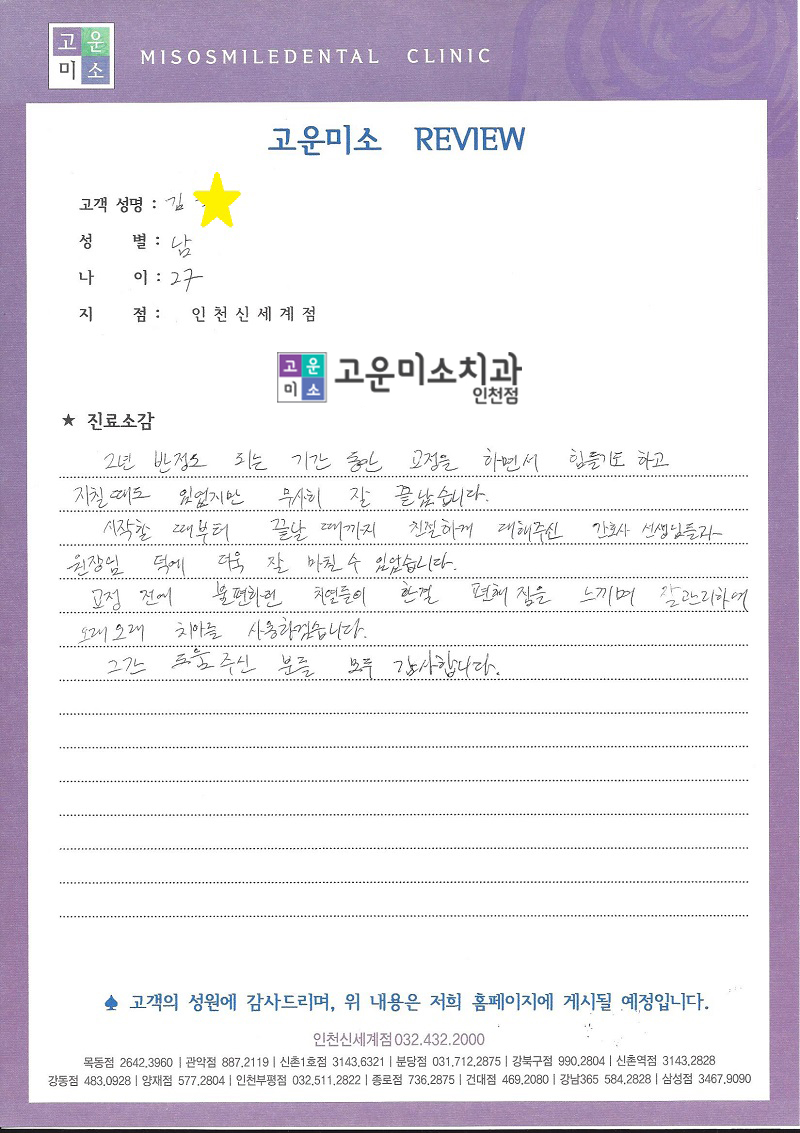 고운
미소
MISOSMILEDENTAL CLINIC
고운미소 REVIEW
고객 성명 : 김
성 별 : 남
나 이 : 27
지 점 : 인천신세계점
고운
미소
고운미소치과
인천점
★ 진료소감
2년 반정도 되는 기간 동안 교정을 하면서 힘들기도 하고
지칠때도 있었지만 무사히 잘 끝났습니다.
시작할 때부터 끝날 때까지 친절하게 대해주신 간호사 선생님들과
원장님 덕에 더욱 잘 마칠 수 있었습니다.
교정 전에 불편하던 치열들이 한결 편해 짐을 느끼며 잘관리하여
오래오래 치아를 사용하겠습니다.
그간 도움주신 분들 모두 감사합니다.
♠ 고객의 성원에 감사드리며, 위 내용은 저희 홈페이지에 게시될 예정입니다.
인천신세계점 032.432.2000
목동점 2642.3960 | 관악점 887.2119 | 신촌1호점 3143.6321 | 분당점 031.712.2875 | 강북구점 990.2804 | 신촌역점 3143.2828
강동점 483.0928 | 양재점 577.2804 | 인천부평점 032.511.2822 | 종로점 736.2875 | 건대점 469.2080 | 강남365 584.2828 | 삼성점 3467.9090